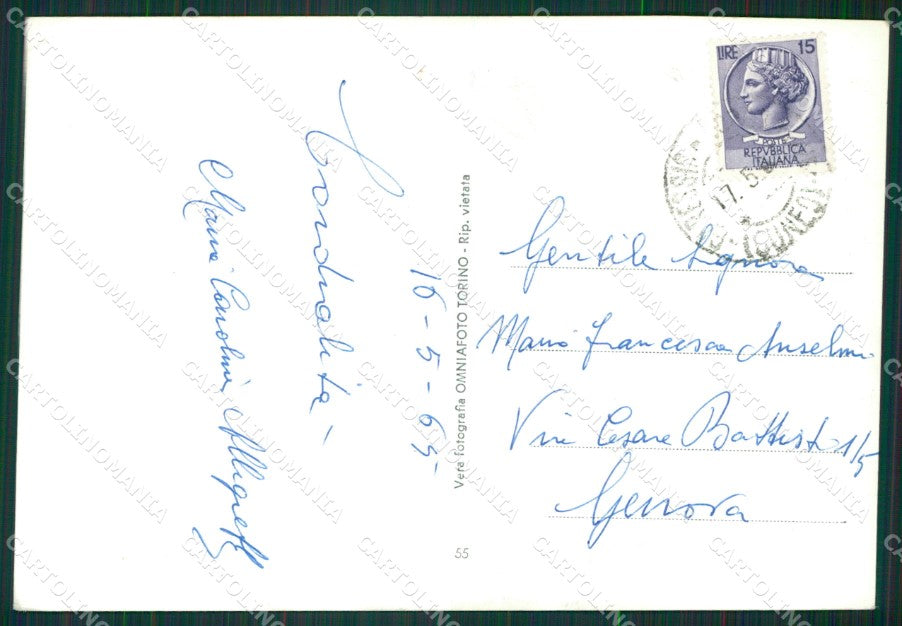 Cordialità -
16-5-65
Maria Carolina
LIRE 15
POSTE
REPVBBLICA
ITALIANA
17.5
(CUNEO)
Gentile Signora
Maria Francesca Anselmi
Via Cesare Battisti 1/5
Genova
Vera fotografia OMNIAFOTO TORINO - Rip. vietata
55
CARTOLINOMANIA